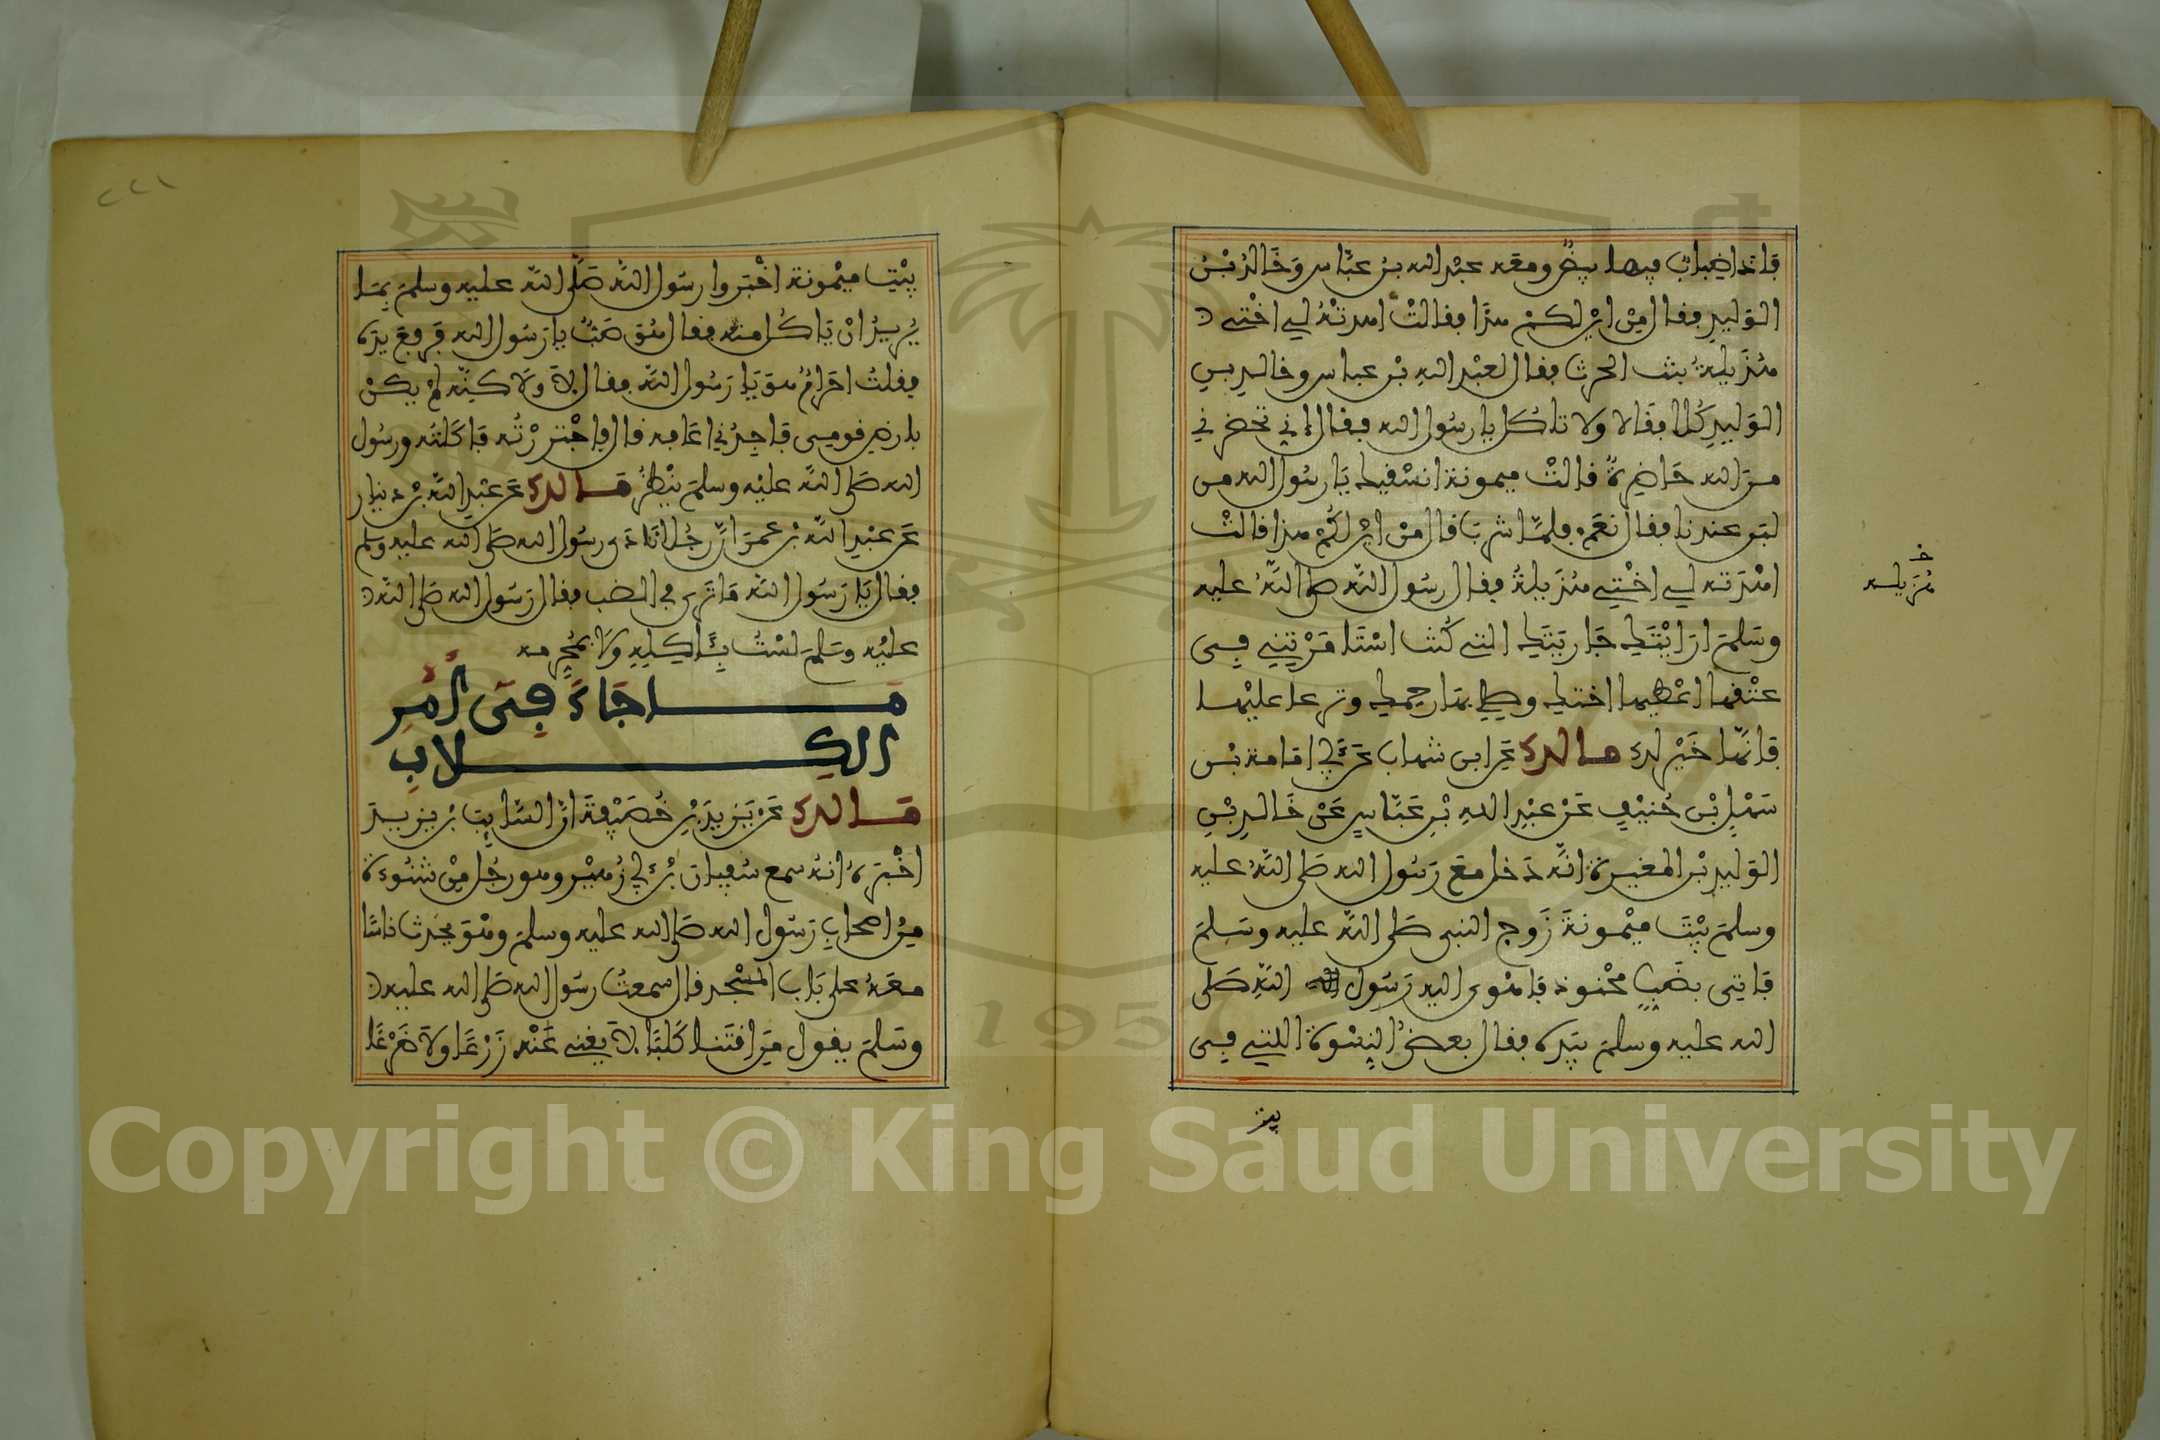 فإذا ضباب فيها بيض ومعه عبد الله بن عباس وخالد بن
الوليد فقال من اين لكم هذا فقالت اهدته لي اختي
هزيلة بنت الحرث فقال لعبد الله بن عباس وخالد بن
الوليد كلا فقالا ولا تاكل يا رسول الله فقال اني تحضرني
من الله حاضرة قالت ميمونة انسقيك يا رسول الله من
لبن عندنا فقال نعم فلما شرب قال من اين لكم هذا قالت
اهدته لي اختي هزيلة فقال رسول الله صلى الله عليه
وسلم ارايتك جاريتك التي كنت استامرتيني في
عتقها اعطيها اختك وصلي بها رحمك وترعا عليها
فانها خير لك مالك عن ابن شهاب عن ابي امامة بن
سهل بن حنيف عن عبد الله بن عباس عن خالد بن
الوليد بن المغيرة انه دخل مع رسول الله صلى الله عليه
وسلم بيت ميمونة زوج النبي صلى الله عليه وسلم
فاتي بضب محنوذ فاهوى اليه رسول الله صلى
الله عليه وسلم بيده فقال بعض النسوة اللتي في
خ
هزيله
بيت
٢٢١
بيت ميمونة اخبروا رسول الله صلى الله عليه وسلم بما
يريد ان ياكل منه فقال هو ضب يا رسول الله فرفع يده
فقلت احرام هو يا رسول الله فقال لا ولاكنه لم يكن
بارض قومي فاجدني اعافه قال فاجتررته فاكلته ورسول
الله صلى الله عليه وسلم ينظر مالك عن عبد الله بن دينار
عن عبد الله بن عمر ان رجلا نادى رسول الله صلى الله عليه وسلم
فقال يا رسول الله ما ترى في الضب فقال رسول الله صلى الله
عليه وسلم لست بئاكله ولا بمحرمه
ما جاء في أمر
الكلاب
مالك عن يزيد بن خصيفة ان السايب بن يزيد
اخبره انه سمع سفيان بن ابي زهير وهو رجل من شنوءة
من اصحاب رسول الله صلى الله عليه وسلم وهو يحدث ناسا
معه على باب المسجد قال سمعت رسول الله صلى الله عليه
وسلم يقول من اقتنا كلبا لا يغني عنه زرعا ولا ضرعا
Copyright © King Saud University
1957